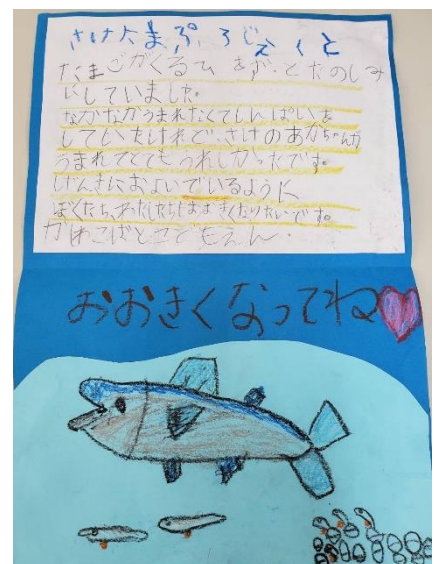 さけたまぷろじぇくと
たまごがくるひ をず、とたのしみ
にしていました。
なかなかうまれなくてしんぱいを
していたけれど、さけのあかちゃんが
うまれてとてもうれしかったです。
げんきにおよいでいるように
ぼくたち、わたしたちもおおきくなりたいです。
かわこばとこどもえん.
おおきくなってね